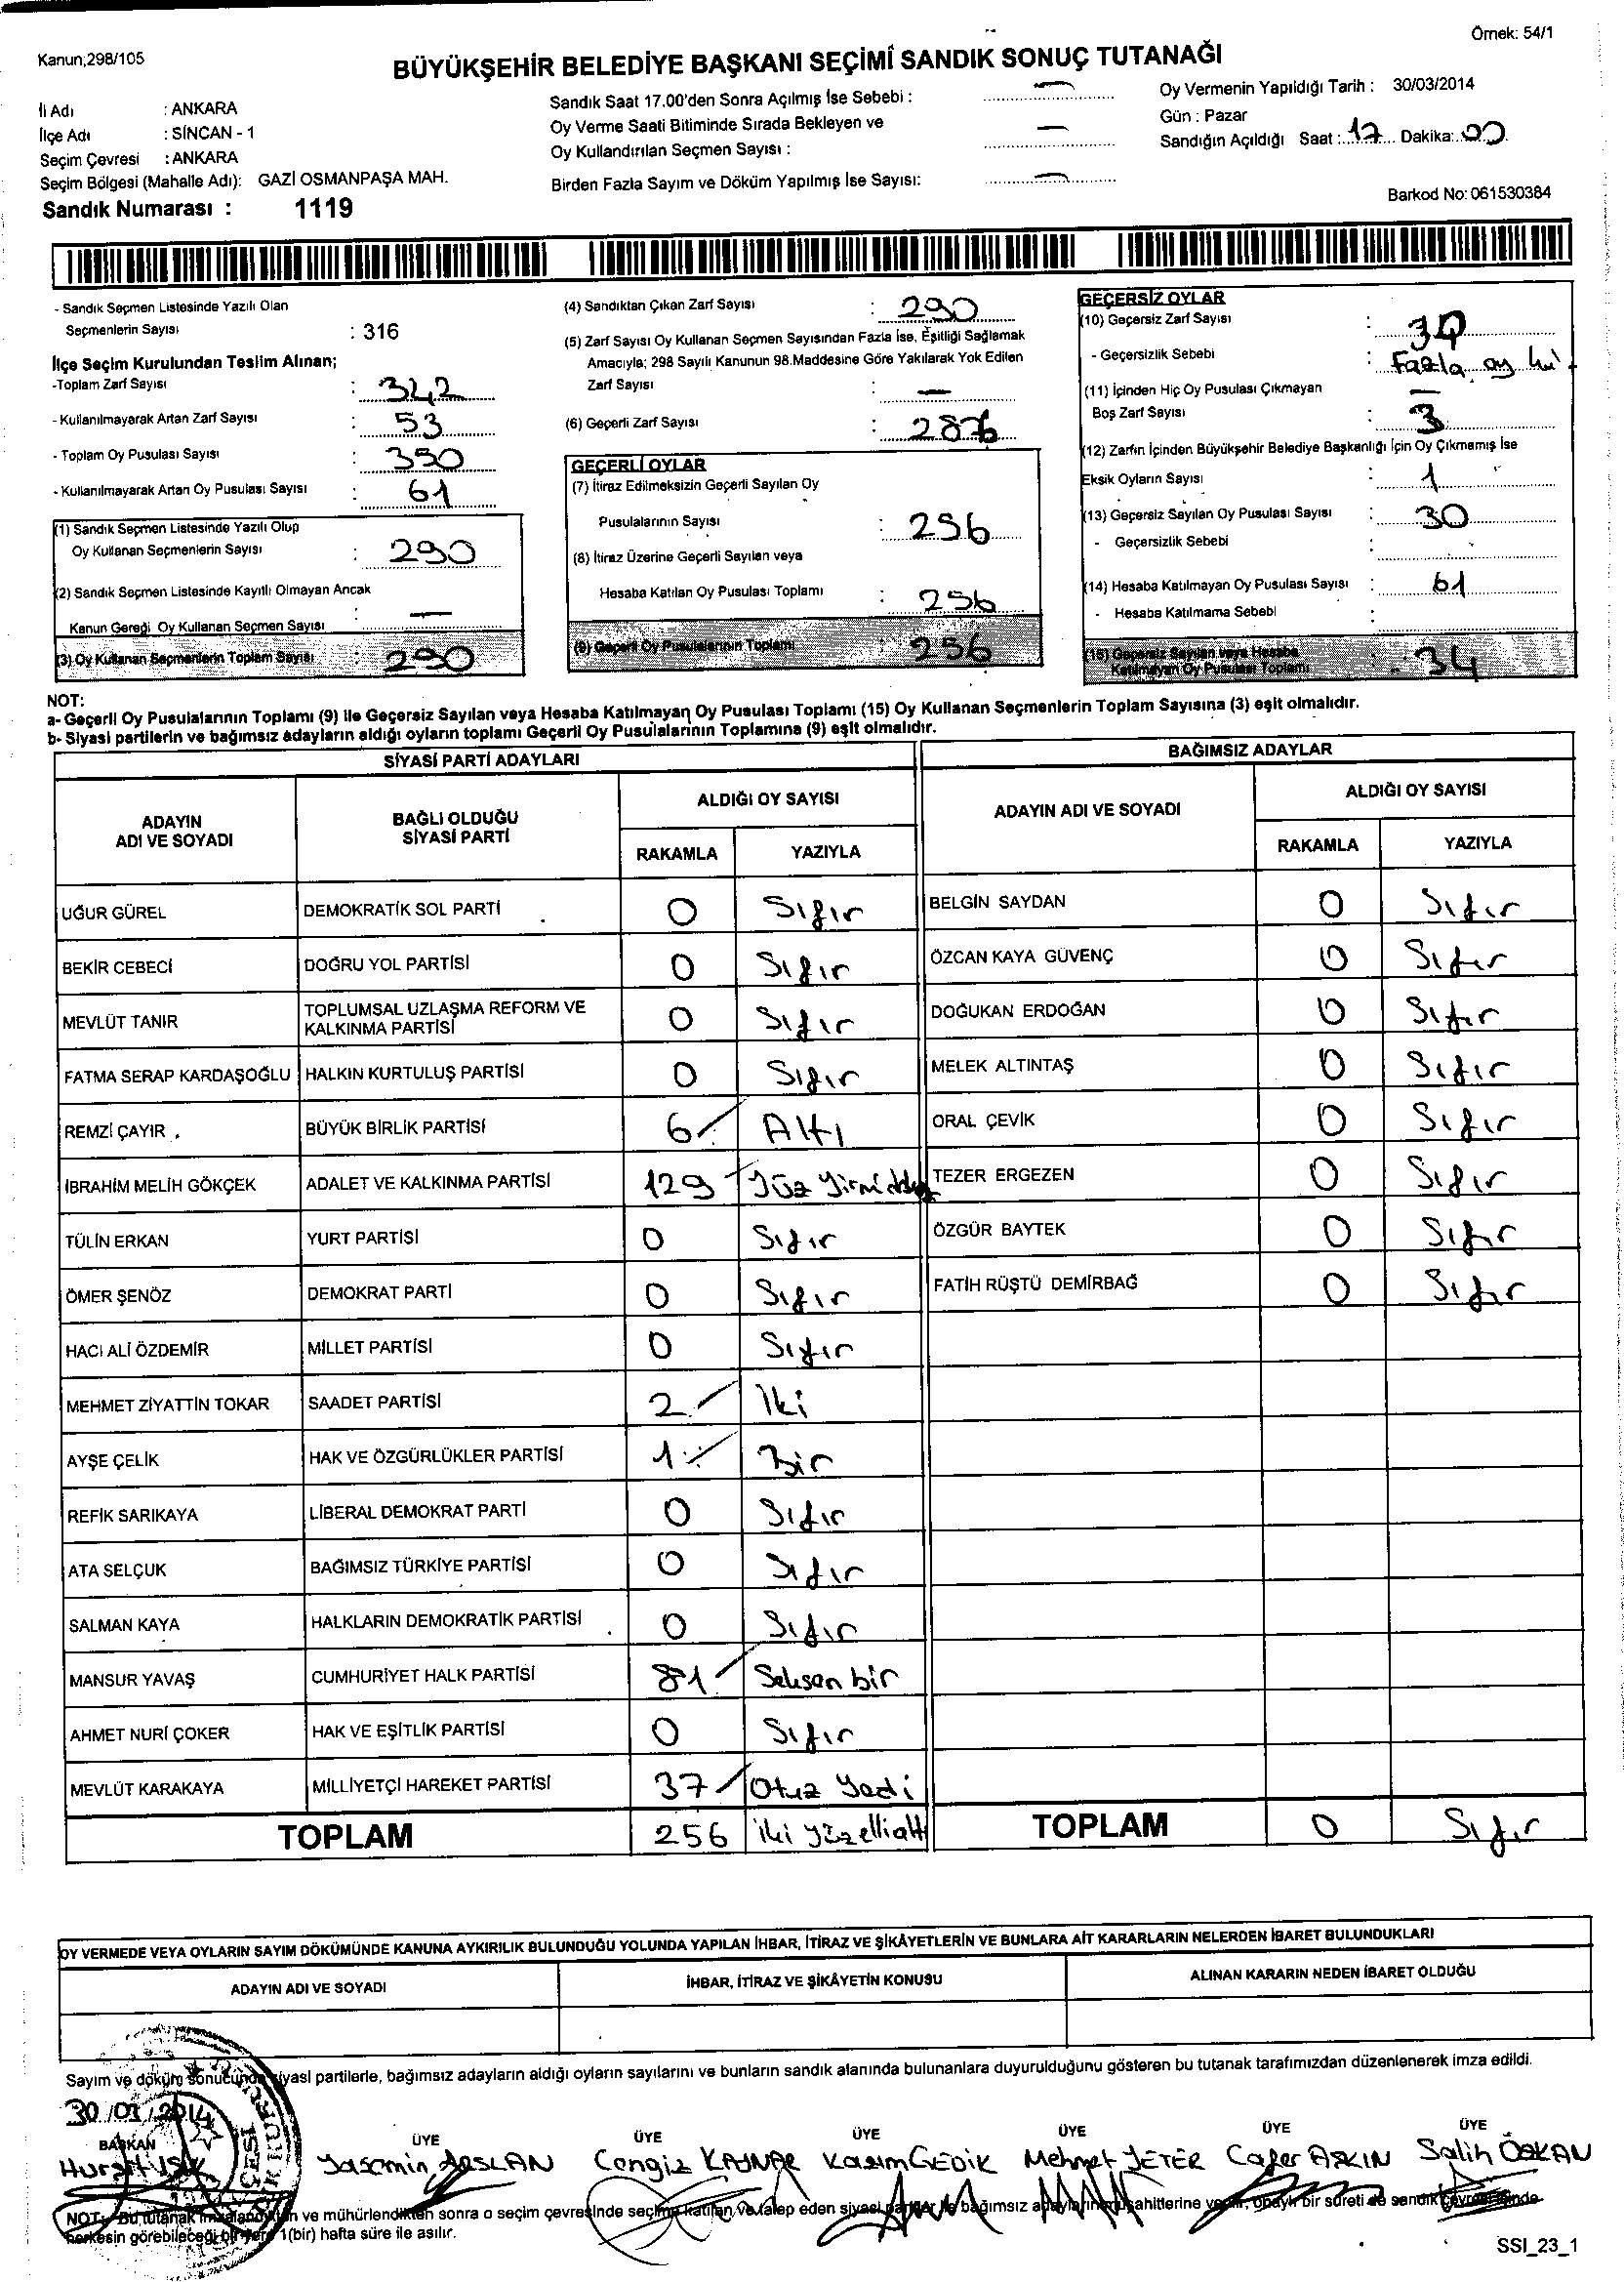 Örnek: 54/1
Kanun;298/105
BÜYÜKŞEHİR BELEDİYE BAŞKANI SEÇİMİ SANDIK SONUÇ TUTANAĞI
İl Adı : ANKARA
İlçe Adı : SİNCAN - 1
Seçim Çevresi : ANKARA
Seçim Bölgesi (Mahalle Adı): GAZİ OSMANPAŞA MAH.
Sandık Numarası : 1119
Sandık Saat 17.00'den Sonra Açılmış İse Sebebi : —
Oy Verme Saati Bitiminde Sırada Bekleyen ve
Oy Kullandırılan Seçmen Sayısı : —
Birden Fazla Sayım ve Döküm Yapılmış İse Sayısı: —
Oy Vermenin Yapıldığı Tarih : 30/03/2014
Gün : Pazar
Sandığın Açıldığı Saat : 17 Dakika: 00
Barkod No: 061530384
- Sandık Seçmen Listesinde Yazılı Olan
Seçmenlerin Sayısı : 316
İlçe Seçim Kurulundan Teslim Alınan;
-Toplam Zarf Sayısı : 342
- Kullanılmayarak Artan Zarf Sayısı : 53
- Toplam Oy Pusulası Sayısı : 350
- Kullanılmayarak Artan Oy Pusulası Sayısı : 61
(1) Sandık Seçmen Listesinde Yazılı Olup
Oy Kullanan Seçmenlerin Sayısı : 290
(2) Sandık Seçmen Listesinde Kayıtlı Olmayan Ancak
Kanun Gereği Oy Kullanan Seçmen Sayısı : —
(3) Oy Kullanan Seçmenlerin Toplam Sayısı : 290
(4) Sandıktan Çıkan Zarf Sayısı : 290
(5) Zarf Sayısı Oy Kullanan Seçmen Sayısından Fazla İse, Eşitliği Sağlamak
Amacıyla; 298 Sayılı Kanunun 98.Maddesine Göre Yakılarak Yok Edilen
Zarf Sayısı : —
(6) Geçerli Zarf Sayısı :
GEÇERLİ OYLAR
(7) İtiraz Edilmeksizin Geçerli Sayılan Oy
Pusulalarının Sayısı : 256
(8) İtiraz Üzerine Geçerli Sayılan veya
Hesaba Katılan Oy Pusulası Toplamı : 256
(9) Geçerli Oy Pusulalarının Toplamı : 256
GEÇERSİZ OYLAR
(10) Geçersiz Zarf Sayısı :
- Geçersizlik Sebebi : Fazla oy
(11) İçinden Hiç Oy Pusulası Çıkmayan
Boş Zarf Sayısı : 3
(12) Zarfın İçinden Büyükşehir Belediye Başkanlığı İçin Oy Çıkmamış İse
Eksik Oyların Sayısı : 1
(13) Geçersiz Sayılan Oy Pusulası Sayısı : 30
- Geçersizlik Sebebi :
(14) Hesaba Katılmayan Oy Pusulası Sayısı : 61
- Hesaba Katılmama Sebebi :
(15) Geçersiz Sayılan veya Hesaba
Katılmayan Oy Pusulası Toplamı : 34
NOT:
a- Geçerli Oy Pusulalarının Toplamı (9) ile Geçersiz Sayılan veya Hesaba Katılmayan Oy Pusulası Toplamı (15) Oy Kullanan Seçmenlerin Toplam Sayısına (3) eşit olmalıdır.
b- Siyasi partilerin ve bağımsız adayların aldığı oyların toplamı Geçerli Oy Pusulalarının Toplamına (9) eşit olmalıdır.
SİYASİ PARTİ ADAYLARI
ADAYIN ADI VE SOYADI BAĞLI OLDUĞU SİYASİ PARTİ ALDIĞI OY SAYISI
RAKAMLA YAZIYLA
UĞUR GÜREL DEMOKRATİK SOL PARTİ 0 Sıfır
BEKİR CEBECİ DOĞRU YOL PARTİSİ 0 Sıfır
MEVLÜT TANIR TOPLUMSAL UZLAŞMA REFORM VE KALKINMA PARTİSİ 0 Sıfır
FATMA SERAP KARDAŞOĞLU HALKIN KURTULUŞ PARTİSİ 0 Sıfır
REMZİ ÇAYIR BÜYÜK BİRLİK PARTİSİ 6 Altı
İBRAHİM MELİH GÖKÇEK ADALET VE KALKINMA PARTİSİ 129 Yüz Yirmi dokuz
TÜLİN ERKAN YURT PARTİSİ 0 Sıfır
ÖMER ŞENÖZ DEMOKRAT PARTİ 0 Sıfır
HACI ALİ ÖZDEMİR MİLLET PARTİSİ 0 Sıfır
MEHMET ZİYATTİN TOKAR SAADET PARTİSİ 2 İki
AYŞE ÇELİK HAK VE ÖZGÜRLÜKLER PARTİSİ 1 Bir
REFİK SARIKAYA LİBERAL DEMOKRAT PARTİ 0 Sıfır
ATA SELÇUK BAĞIMSIZ TÜRKİYE PARTİSİ 0 Sıfır
SALMAN KAYA HALKLARIN DEMOKRATİK PARTİSİ 0 Sıfır
MANSUR YAVAŞ CUMHURİYET HALK PARTİSİ 81 Seksen bir
AHMET NURİ ÇOKER HAK VE EŞİTLİK PARTİSİ 0 Sıfır
MEVLÜT KARAKAYA MİLLİYETÇİ HAREKET PARTİSİ 37 Otuz Yedi
TOPLAM 256 İki yüzellialtı
BAĞIMSIZ ADAYLAR
ADAYIN ADI VE SOYADI ALDIĞI OY SAYISI
RAKAMLA YAZIYLA
BELGİN SAYDAN 0 Sıfır
ÖZCAN KAYA GÜVENÇ 0 Sıfır
DOĞUKAN ERDOĞAN 0 Sıfır
MELEK ALTINTAŞ 0 Sıfır
ORAL ÇEVİK 0 Sıfır
TEZER ERGEZEN 0 Sıfır
ÖZGÜR BAYTEK 0 Sıfır
FATİH RÜŞTÜ DEMİRBAĞ 0 Sıfır
TOPLAM 0 Sıfır
OY VERMEDE VEYA OYLARIN SAYIM DÖKÜMÜNDE KANUNA AYKIRILIK BULUNDUĞU YOLUNDA YAPILAN İHBAR, İTİRAZ VE ŞİKÂYETLERİN VE BUNLARA AİT KARARLARIN NELERDEN İBARET BULUNDUKLARI
ADAYIN ADI VE SOYADI İHBAR, İTİRAZ VE ŞİKÂYETİN KONUSU ALINAN KARARIN NEDEN İBARET OLDUĞU
Sayım ve döküm sonucunda siyasi partilerle, bağımsız adayların aldığı oyların sayılarını ve bunların sandık alanında bulunanlara duyurulduğunu gösteren bu tutanak tarafımızdan düzenlenerek imza edildi.
30/03/2014
BAŞKAN ÜYE ÜYE ÜYE ÜYE ÜYE ÜYE
Hurşit IŞIK Yasemin ARSLAN Cengiz KAYNAR Kasım GEDİK Mehmet YETER Cafer AŞKIN Salih ÖZKAN
NOT: Bu tutanak imzalandıktan ve mühürlendikten sonra o seçim çevresinde seçime katılan ve talep eden siyasi partiler ile bağımsız adayların müşahitlerine verilir, onaylı bir sureti de sandık çevresinde
herkesin görebileceği bir yere 1(bir) hafta süre ile asılır.
SSI_23_1